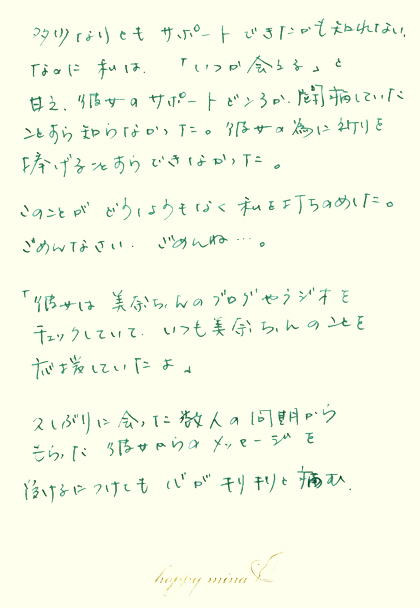 多少なりともサポートできたかも知れない。
なのに 私は、「いつか会える」と
甘え、彼女のサポートどころか、闘病していた
ことすら知らなかった。彼女の為に祈りを
捧げることすらできなかった。
このことが どうしようもなく 私を打ちのめした。
ごめんなさい。ごめんね…。
「彼女は 美奈ちゃんのブログやラジオを
チェックしていて、いつも美奈ちゃんのことを
応援していたよ」
久しぶりに会った数人の同期から
もらった 彼女からのメッセージを
受けるにつけても 心がキリキリと痛む。
happy mina